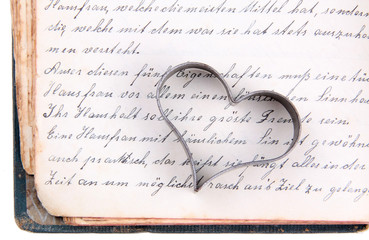 Hausfrau, welche die meisten Mittel hat, sondern
dig welche mit dem was sie hat stets auszuko
men versteht.
Ausser diesen fünf Eigenschaften muß eine tü
Hausfrau vor allem einen Sinn
Ihr Haushalt soll ihre gröste Freude sein
Eine Hausfrau mit häuslichem Sinn ist gewöhn
auch practisch, das heißt sie fängt alles in der
Zeit an um möglichst rasch an's Ziel zu gelang